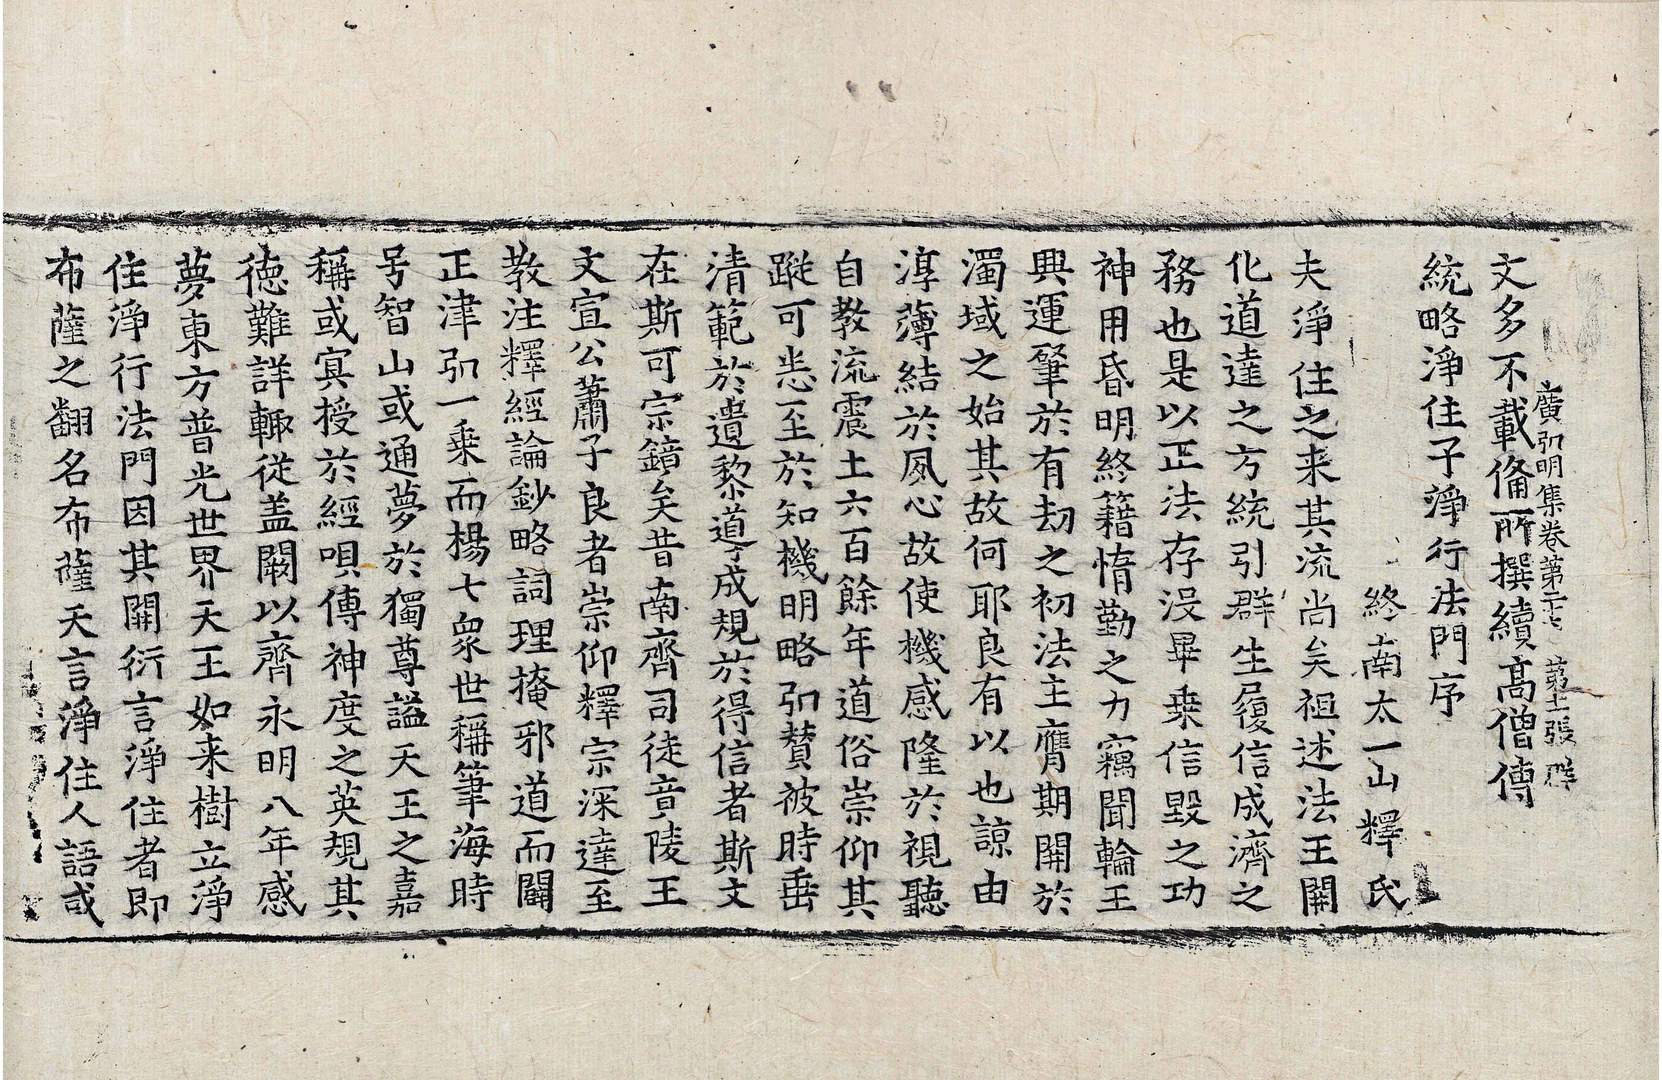 廣弘明集卷第二十七 第十二張 群
文多不載備所撰續髙僧傳
統略淨住子淨行法門序
終南太一山釋氏
夫淨住之来其流尚矣祖述法王開
化道達之方統引群生履信成濟之
務也是以正法存没畢乗信毀之功
神用昏明終籍惰勤之力竊聞輪王
興運肇於有刼之初法主膺期開於
濁域之始其故何耶良有以也諒由
淳薄結於夙心故使機感隆於視聽
自教流震土六百餘年道俗崇仰其
蹤可悉至於知機明略弘賛被時垂
清範於遺黎導成規於得信者斯文
在斯可宗鏡矣昔南齊司徒竟陵王
文宣公蕭子良者崇仰釋宗深達至
教注釋經論鈔略詞理掩邪道而闢
正津弘一乗而楊七衆世稱筆海時
号智山或通夢於獨尊謚天王之嘉
稱或冥授於經唄傳神度之英規其
徳難詳輙従盖闕以齊永明八年感
夢東方普光世界天王如来樹立淨
住淨行法門因其開衍言淨住者即
布薩之翻名布薩天言淨住人語或